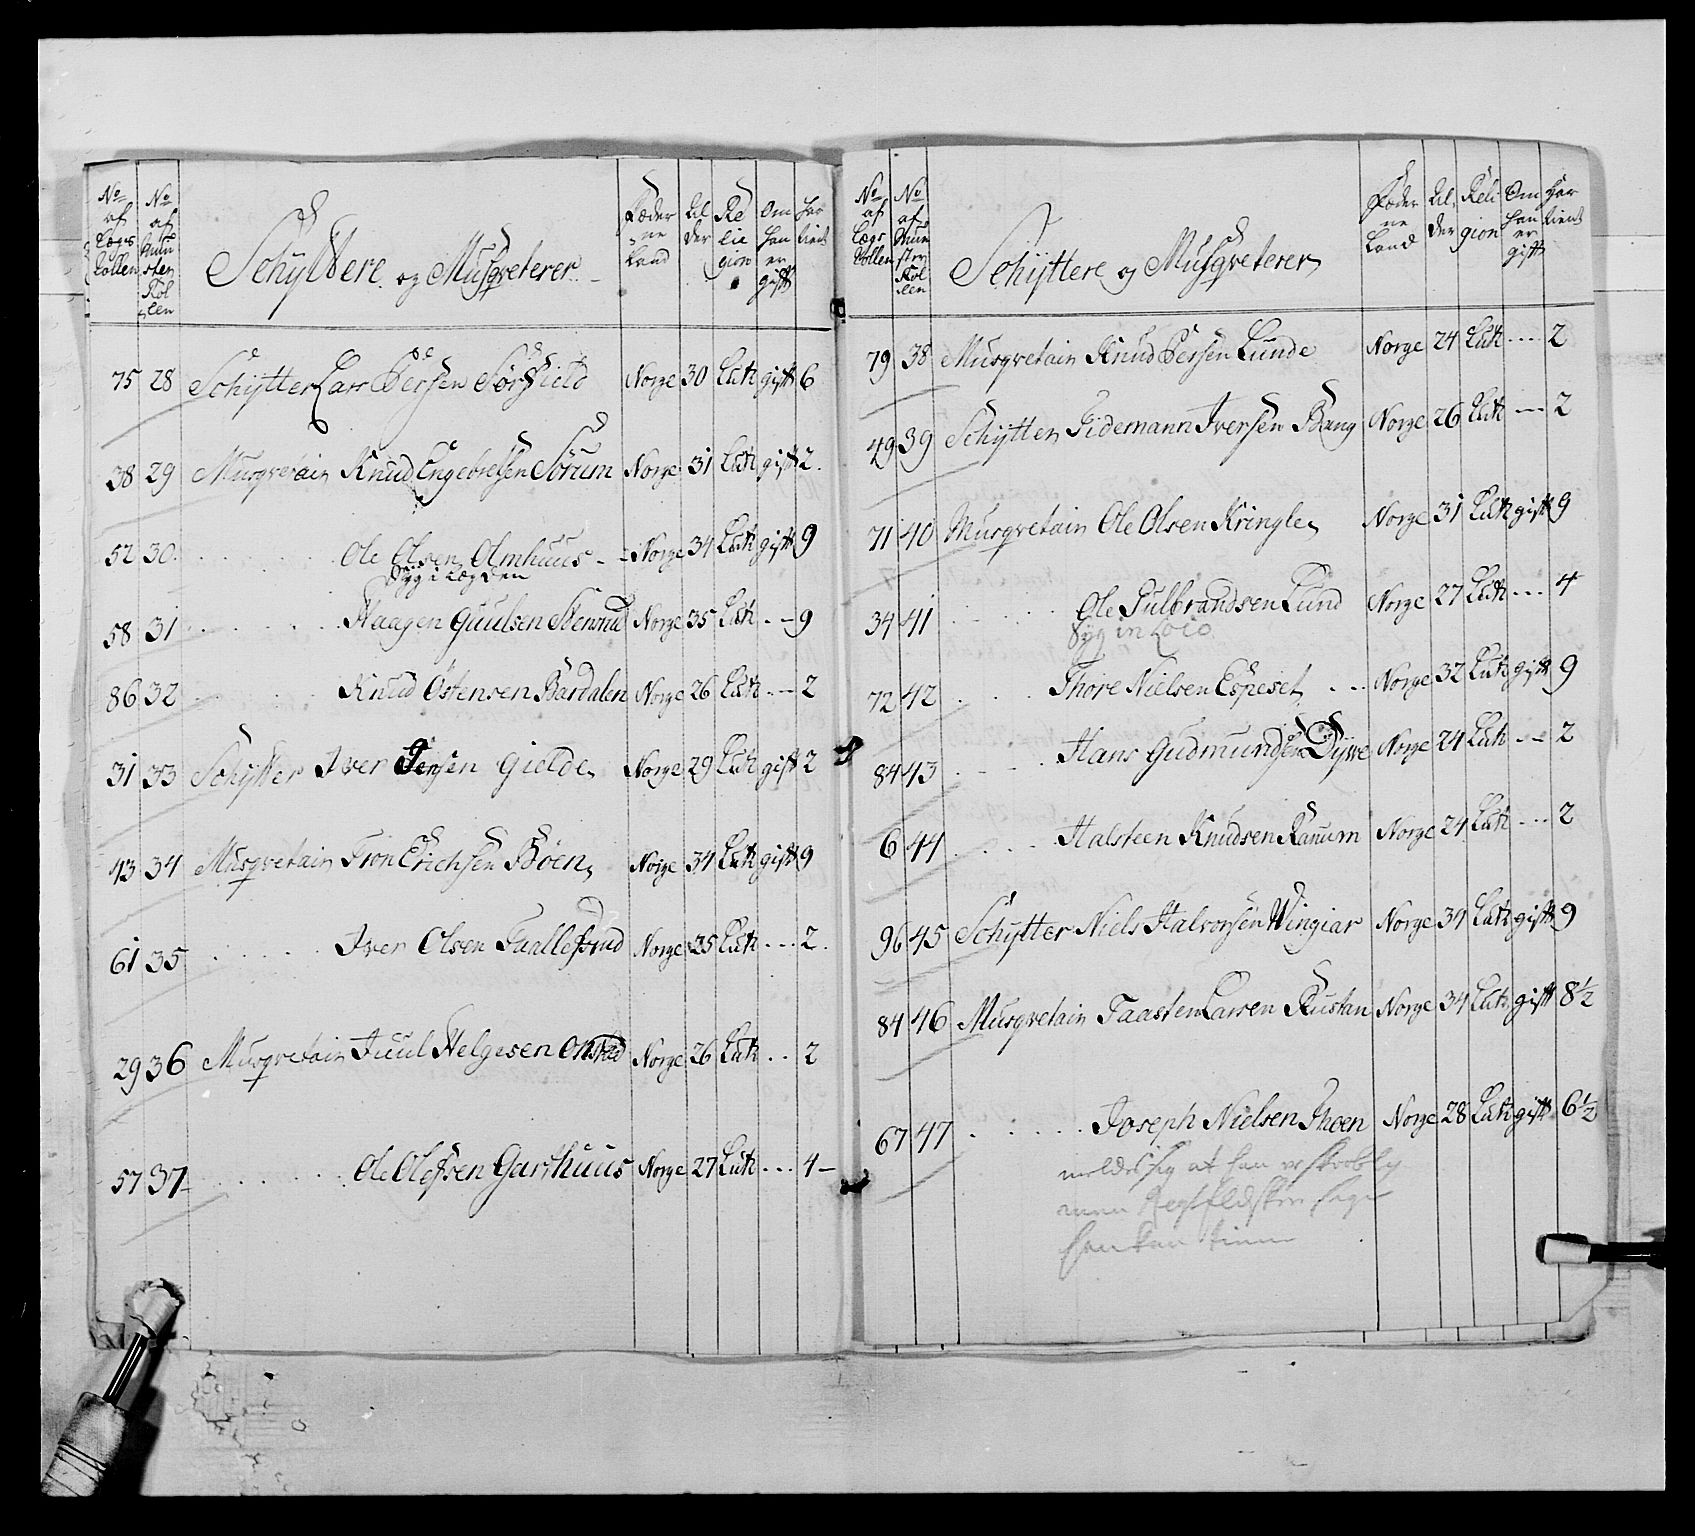 No af Lægs Rollen | No af Mun ster Rol len | Schÿttere og Musqveterer | Fæder ne Land | Al der | Re lie gion | Om han er gift | har tient
75 28 Schÿtter Lars Persen Sørflield Norge 30 Luth gift 6
38 29 Musqvetair Knud Engebretsen Sørum Norge 31 Luth gift 2.
52 30. Ole Olsen Olmhuus - Norge 34 Luth gift 9
Syg i Lægden
58 31 Haagen Guulsen Norge 35 Luth - - 9
86 32 Knud Østensen Bardalen Norge 26 Luth - - - 2
31 33 Schÿtter Iver Jensen Gielde Norge 29 Luth gift 2
43 34 Musqvetair Tron Erichsen Bøen Norge 34 Luth gift 9
61 35 Iver Olsen Norge 35 Luth - - - 2.
29 36 Musqvetair Juul Helgesen Norge 26 Luth - - 2
57 37 Ole Olefsen Garthuus Norge 27 Luth - - - 4 -
No af Lægs Rollen | No af Mun ster Rol len | Schÿttere og Musqveterer | Fæder ne Land | Al der | Reli gion | Om han er gift | Har tient
79 38 Musqvetair Knud Persen Lunde Norge 24 Luth - - - - 2
49 39 Schÿtter Tidemann Iversen Bang Norge 26 Luth - - - 2
71 40 Musqvetair Ole Olsen Kringle Norge 31 Luth gift 9
34 41 Ole Gulbrandsen Lund Norge 27 Luth - - - 4
Syg in Loco
72 42 Thore Nielsen Espeset - - Norge 32 Luth gift 9
84 43 Hans Gudmundsen Dÿwe Norge 24 Luth - - 2
6 44 Halsteen Knudsen Ranum Norge 24 Luth - - - 2
96 45 Schÿtter Niels Halvorsen Wingiar Norge 34 Luth gift 9
84 46 Musqvetair Taasten Larsen Rustan Norge 34 Luth gift 8½
67 47 Joseph Nielsen Thoen Norge 28 Luth gift 6½
melder sig at han er
men siger
han kan tiene